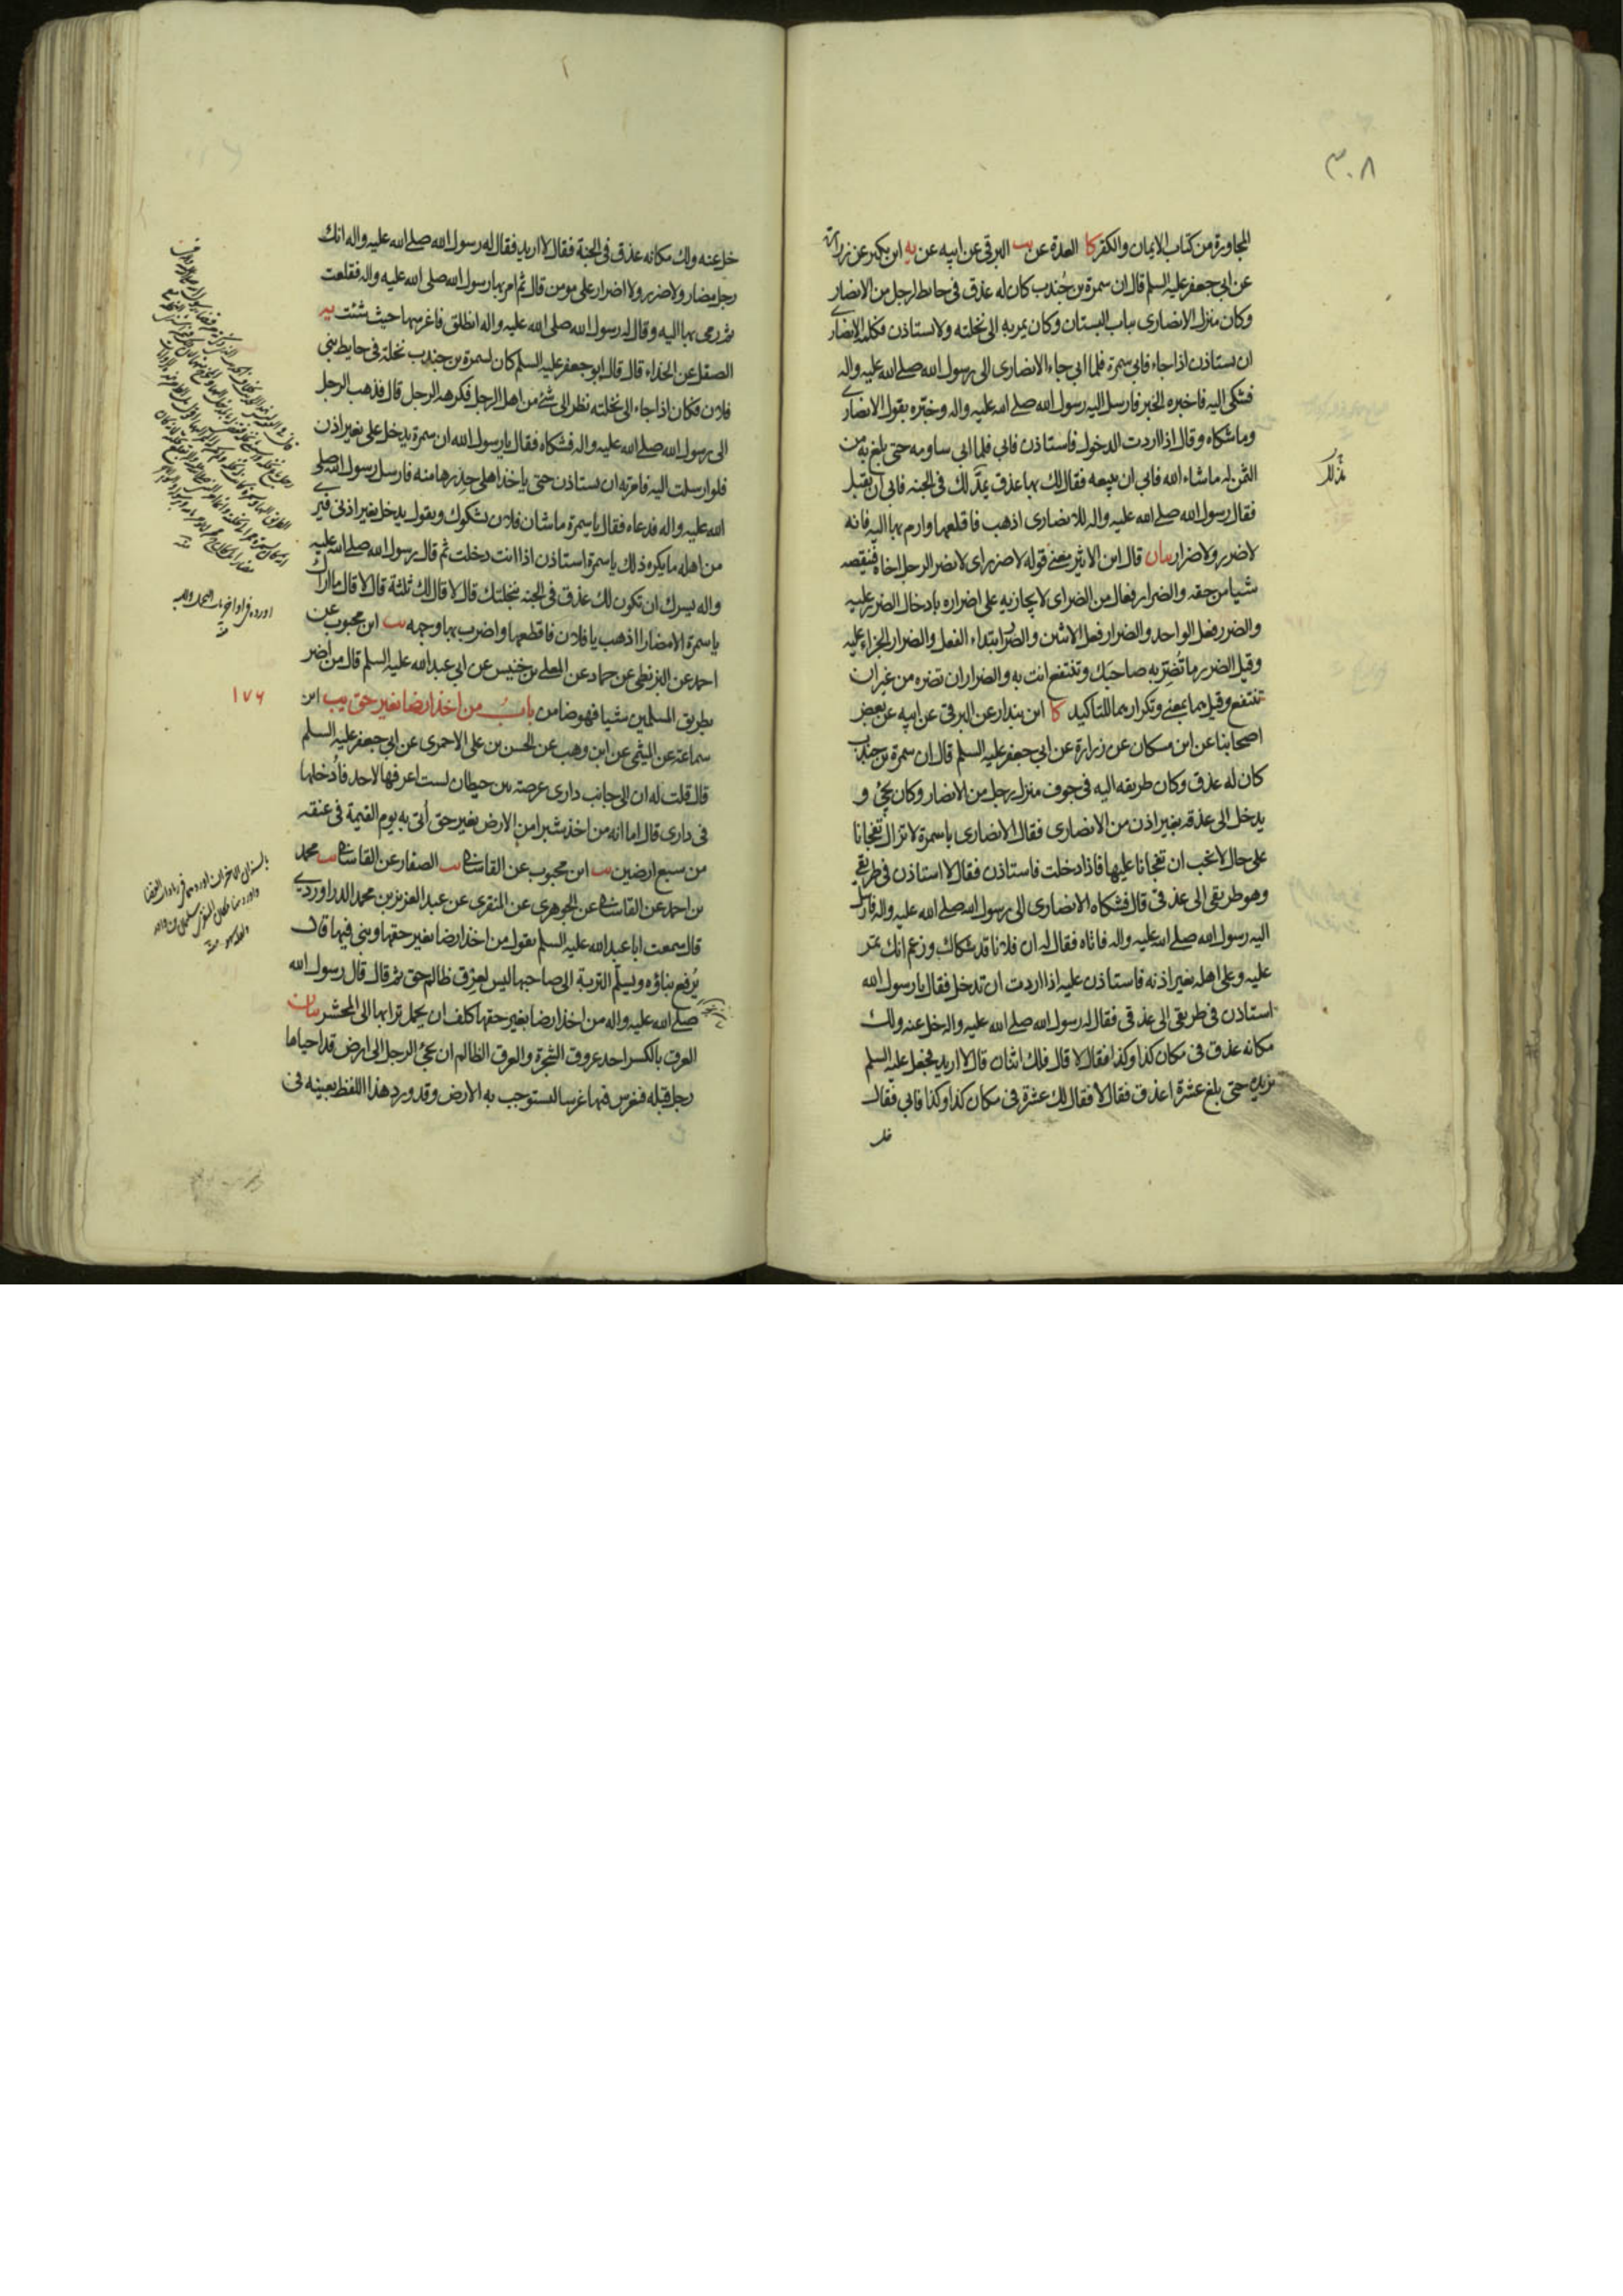 ٣٠٨
المجاورة من كتاب الايمان والكفر كا العدة عن يب البرقي عن ابيه عن يه ابن بكير عن زرارة
عن ابي جعفر عليه السلم قال ان سمرة بن جُندب كان له عذق في حايط لرجل من الانصار
وكان منزل الانصارى بباب البستان وكان يمر به الى نخلته ولا يستاذن فكلمه الانصارى
ان يستاذن اذا جاء فابى سمرة فلما ابى جاء الانصارى الى رسول الله صلى الله عليه واله
فشكى اليه فاخبره الخبر فارسل اليه رسول الله صلى الله عليه واله وخبّره بقول الانصارى
وما شكاه وقال اذا اردت الدخول فاستاذن فابى فلما ابى ساومه حتى بلغ به من
الثمن له ما شاء الله فابى ان يبيعه فقال لك بها عذق يمدّ لك في الجنه فابى ان يقبل
فقال رسول الله صلى الله عليه واله للانصارى اذهب فاقلعها وارم بها اليه فانه
لا ضرر ولا ضرار بيان قال ابن الاثير معنى قوله لا ضرر اى لا يضر الرجل اخاه فينقصه
شيا من حقه والضرار فعال من الضر اى لا يجازيه على اضراره بادخال الضرر عليه
والضرر فعل الواحد والضرار فعل الاثنين والضرر ابتداء الفعل والضرار الجزاء عليه
وقيل الضرر ما تُضِرّ به صاحبَك وتنتفع انت به والضرار ان تضره من غير ان
تنتفع وقيل هما بمعنى وتكرارهما للتاكيد كا ابن بندار عن البرقى عن ابيه عن بعض
اصحابنا عن ابن مسكان عن زرارة عن ابي جعفر عليه السلم قال ان سمرة بن جندب
كان له عذق وكان طريقه اليه في جوف منزل رجل من الانصار وكان يجئ و
يدخل الى عذقه بغير اذن من الانصارى فقال الانصارى يا سمرة لا تزال تفجأنا
على حال لا نحب ان تفجانا عليها فاذا دخلت فاستاذن فقال لا استاذن في طريقي
وهو طريقي الى عذقى قال فشكاه الانصارى الى رسول الله صلى الله عليه واله فارسل
اليه رسول الله صلى الله عليه واله فاتاه فقال له ان فلانا قد شكاك وزعم انك تمرّ
عليه وعلى اهله بغير اذنه فاستاذن عليه اذا اردت ان تدخل فقال يا رسول الله
استاذن في طريقى الى عذقى فقال له رسول الله صلى الله عليه واله خل عنه ولك
مكانه عذق في مكان كذا وكذا فقال لا قال فلك اثنان قال لا اريد فجعل عليه السلم
يزيده حتى بلغ عشرة اعذق فقال لا فقال لك عشرة في مكان كذا وكذا فابى فقال
خل
خل عنه ولك مكانه عذق في الجنة فقال لا اريد فقال له رسول الله صلى الله عليه واله انك
رجل مضار ولا ضرر ولا اضرار على مومن قال ثم امر بها رسول الله صلى الله عليه واله فقلعت
ثم رمى بها اليه وقال له رسول الله صلى الله عليه واله انطلق فاغرسها حيث شئت يه
الصيقل عن الحذاء قال قال ابو جعفر عليه السلم كان لسمرة بن جندب نخلة في حايط بنى
فلان فكان اذا جاء الى نخلته نظر الى شئ من اهل الرجل فكرهه الرجل قال فذهب الرجل
الى رسول الله صلى الله عليه واله فشكاه فقال يا رسول الله ان سمرة يدخل على بغير اذن
فلو ارسلت اليه فامرته ان يستاذن حتى ياخذ اهلى حِذرها منه فارسل رسول الله صلى
الله عليه واله فدعاه فقال يا سمرة ما شان فلان يشكوك ويقول يدخل بغير اذنى فيرى
من اهله ما يكره ذلك يا سمرة استاذن اذا انت دخلت ثم قال رسول الله صلى الله عليه
واله يسرك ان تكون لك عذق في الجنه بنخلتك قال لا قال لك ثلثة قال لا قال ما اراك
يا سمرة الا مضارا اذهب يا فلان فاقطعها واضرب بها وجهه يب ابن محبوب عن
احمد عن البزنطي عن حماد عن المعلى بن خنيس عن ابي عبد الله عليه السلم قال من أضر
بطريق المسلمين شيا فهو ضامن باب من اخذ ارضا بغير حق يب ابن
١٧٦
سماعة عن الميثمى عن ابن وهب عن الحسن بن على الاحمرى عن ابي جعفر عليه السلم
قال قلت له ان الى جانب دارى عرصة بين حيطان لست اعرفها لاحد فأدخلها
في دارى قال اما انه من اخذ شبرا من الارض بغير حق أتى به يوم القيمة في عنقه
من سبع ارضين يب ابن محبوب عن القاساني يب الصفار عن القاساني يب محمد
بن احمد عن القاساني عن الجوهرى عن المنقرى عن عبد العزيز بن محمد الدراوردي
قال سمعت ابا عبد الله عليه السلم يقول من اخذ ارضا بغير حقها وبنى فيها قال
يُرفع بناؤه ويسلّم التربة الى صاحبها ليس لعِرق ظالم حق ثم قال قال رسول الله
صلى الله عليه واله من اخذ ارضا بغير حقها كلف ان يحمل ترابها الى المحشر بيان
العرق بالكسر احد عروق الشجرة والعرق الظالم ان يجئ الرجل الى ارض قد احياها
رجل قبله فيغرس فيها غرسا ليستوجب به الارض وقد ورد هذا اللفظ بعينه في